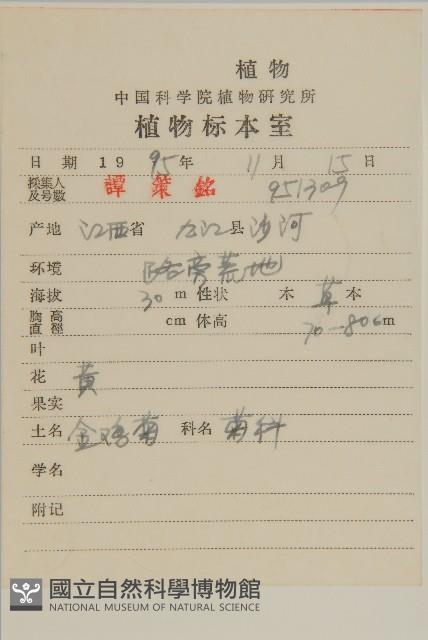 植物
中国科学院植物研究所
植物标本室
日期 1995年 11月 15日
採集人及号数 譚策銘 951309
产地 江西省 九江县沙河
环境 路旁荒地
海拔 30 m 性状 木 草本
胸高直徑 cm 体高 70-80cm
叶
花 黄
果实
土名 金鸡菊 科名 菊科
学名
附记
國立自然科學博物館
NATIONAL MUSEUM OF NATURAL SCIENCE